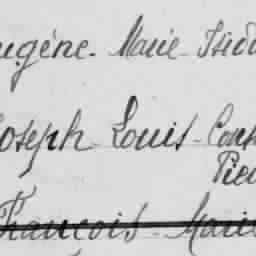 ugène - Marie - Isido
oseph - Louis - Cons
Pier
François - Marie